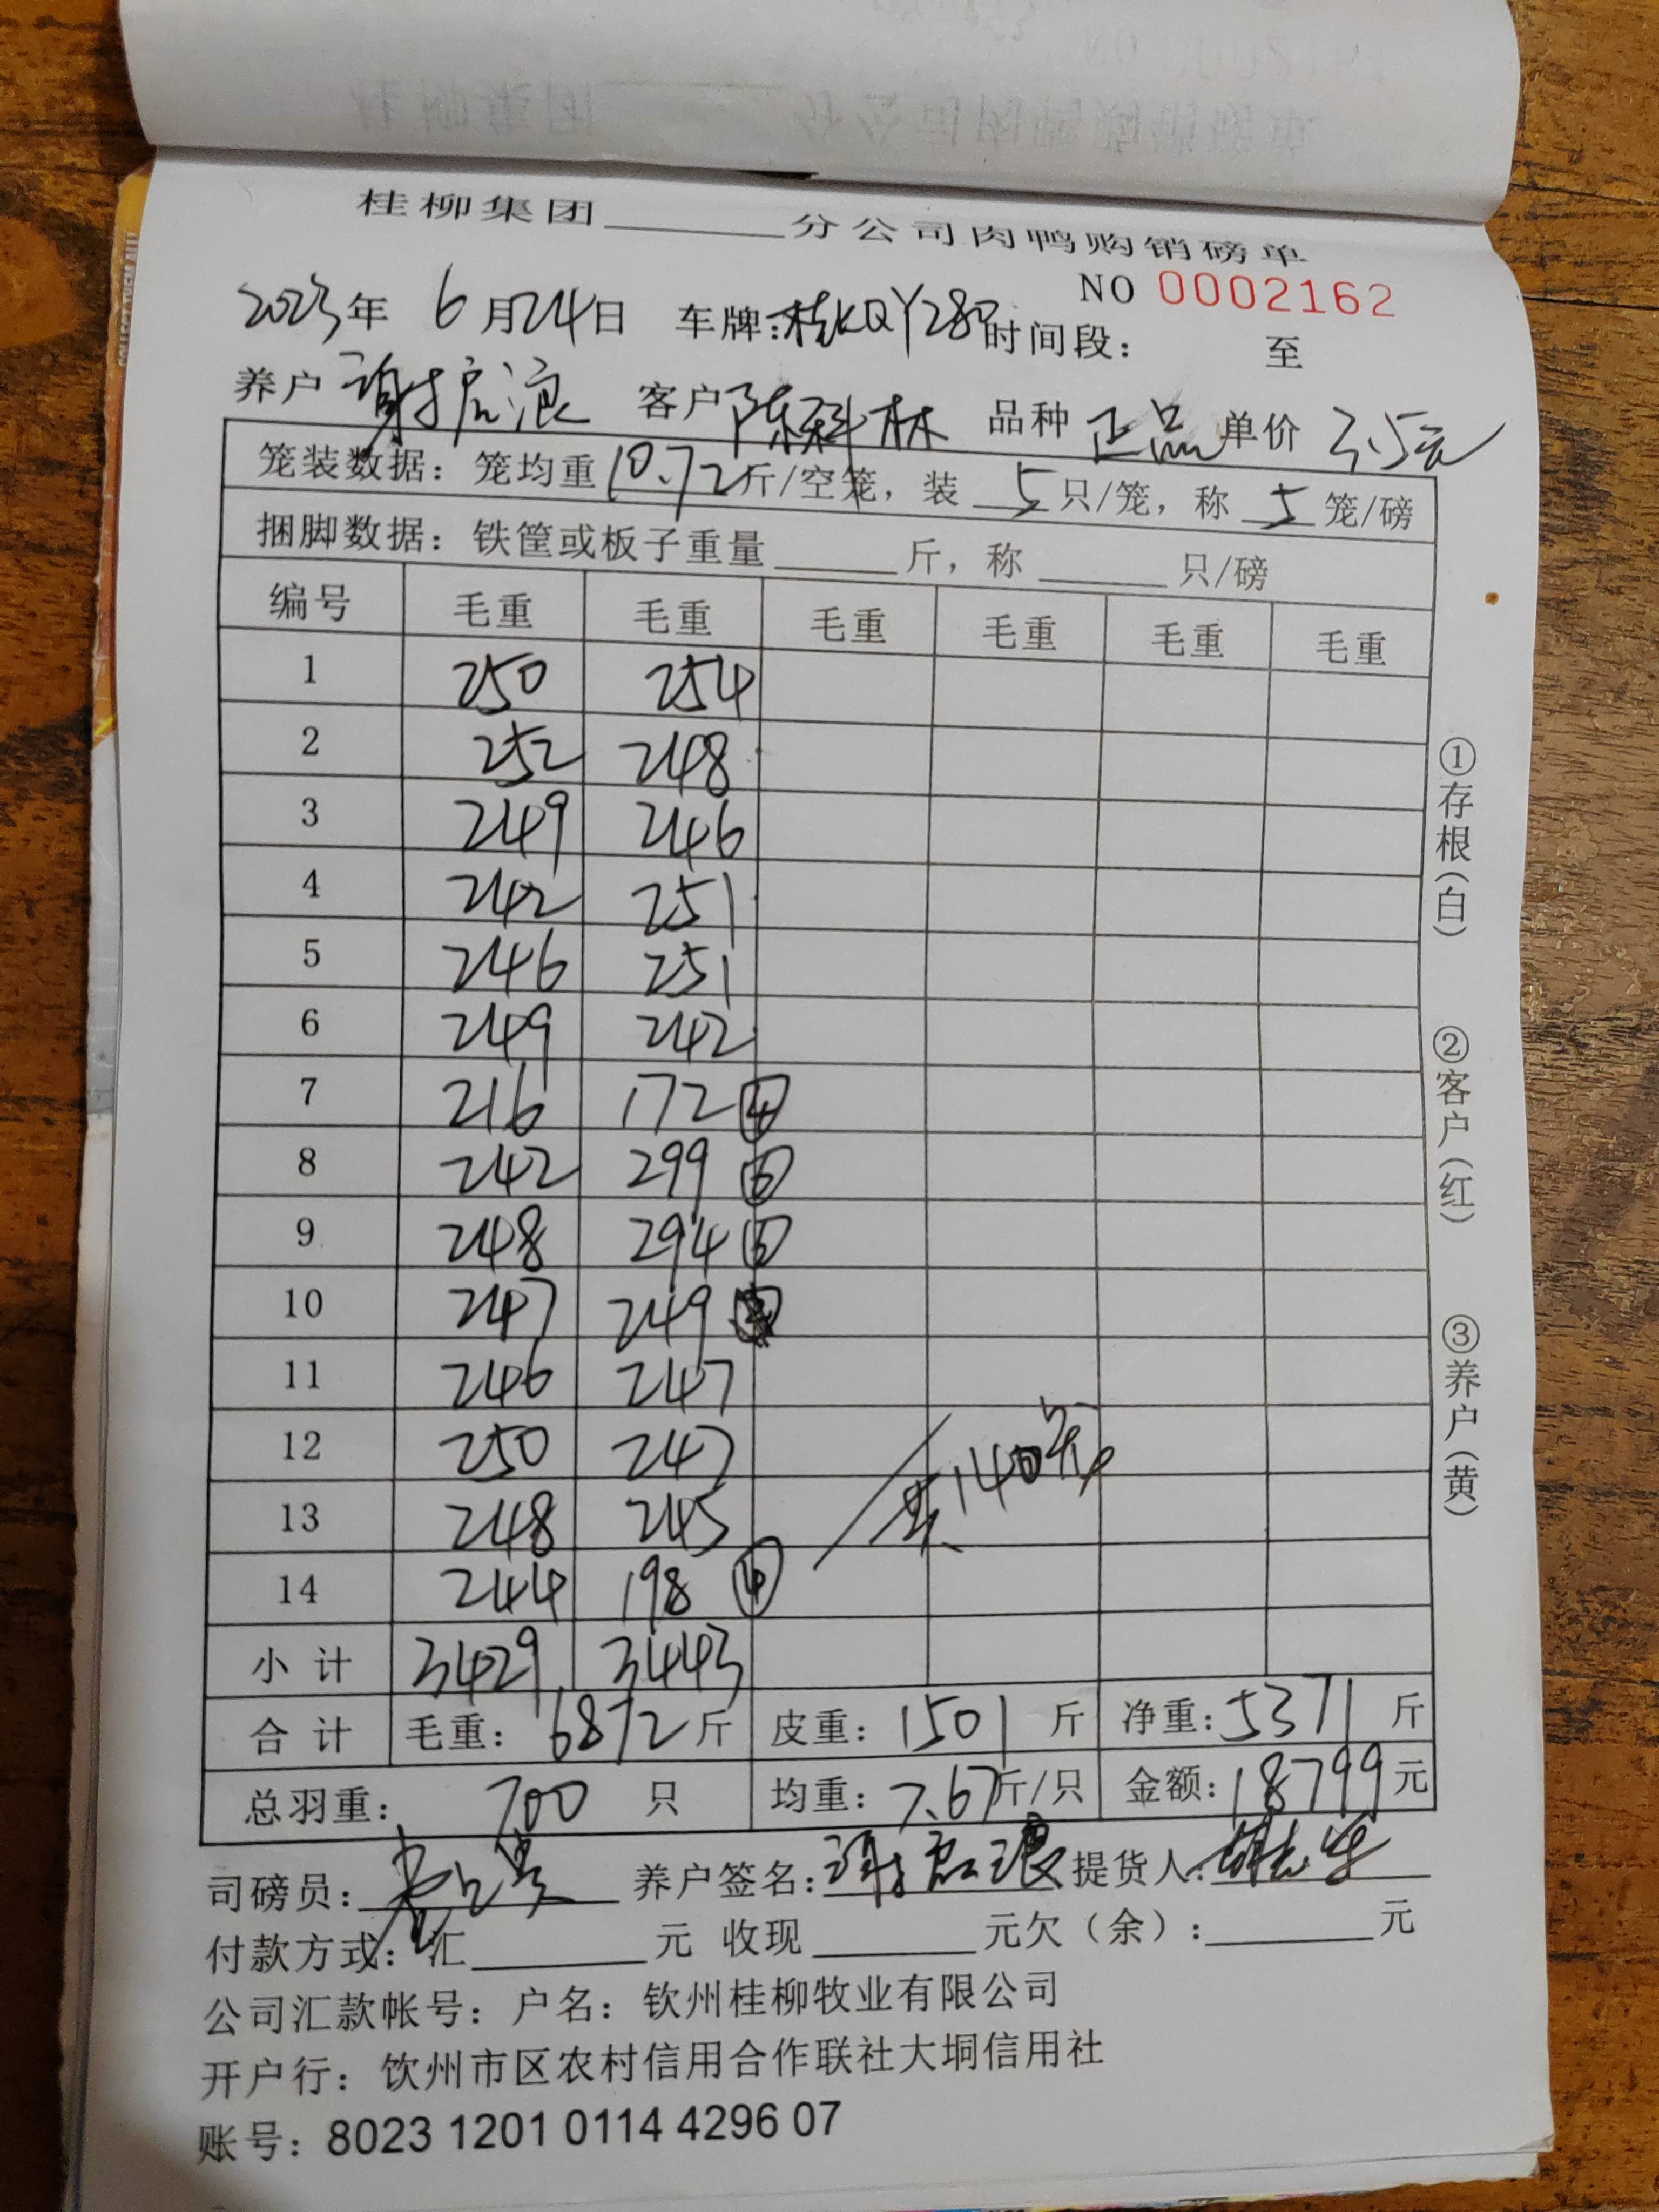 桂柳集团______分公司肉鸭购销磅单
NO 0002162
2023年 6月24日 车牌:桂KQY280 时间段: 至
养户 谢启浪 客户 陈科林 品种 正品 单价 3.5元
笼装数据: 笼均重10.72斤/空笼, 装 5 只/笼, 称 5 笼/磅
捆脚数据: 铁筐或板子重量______斤, 称______只/磅
编号 毛重 毛重 毛重 毛重 毛重 毛重
1 250 254
2 252 248
3 249 246
4 242 251
5 246 251
6 249 242
7 216 172 ④
8 242 299 ⑥
9 248 294 ⑥
10 247 249
11 246 247
12 250 247
13 248 245
14 244 198 ④
共140笼
小计 3429 3443
合计 毛重: 6872斤 皮重: 1501斤 净重: 5371斤
总羽重: 700 只 均重: 7.67斤/只 金额: 18799元
司磅员: 养户签名: 谢启浪 提货人:
付款方式: 汇______元 收现______元欠(余):______元
公司汇款帐号: 户名: 钦州桂柳牧业有限公司
开户行: 饮州市区农村信用合作联社大垌信用社
账号: 8023 1201 0114 4296 07
①存根(白) ②客户(红) ③养户(黄)